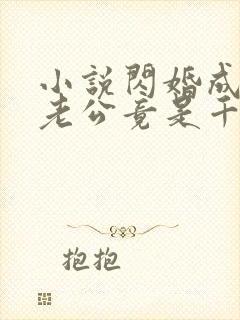 小説閃婚成
老公竟是千
抱抱